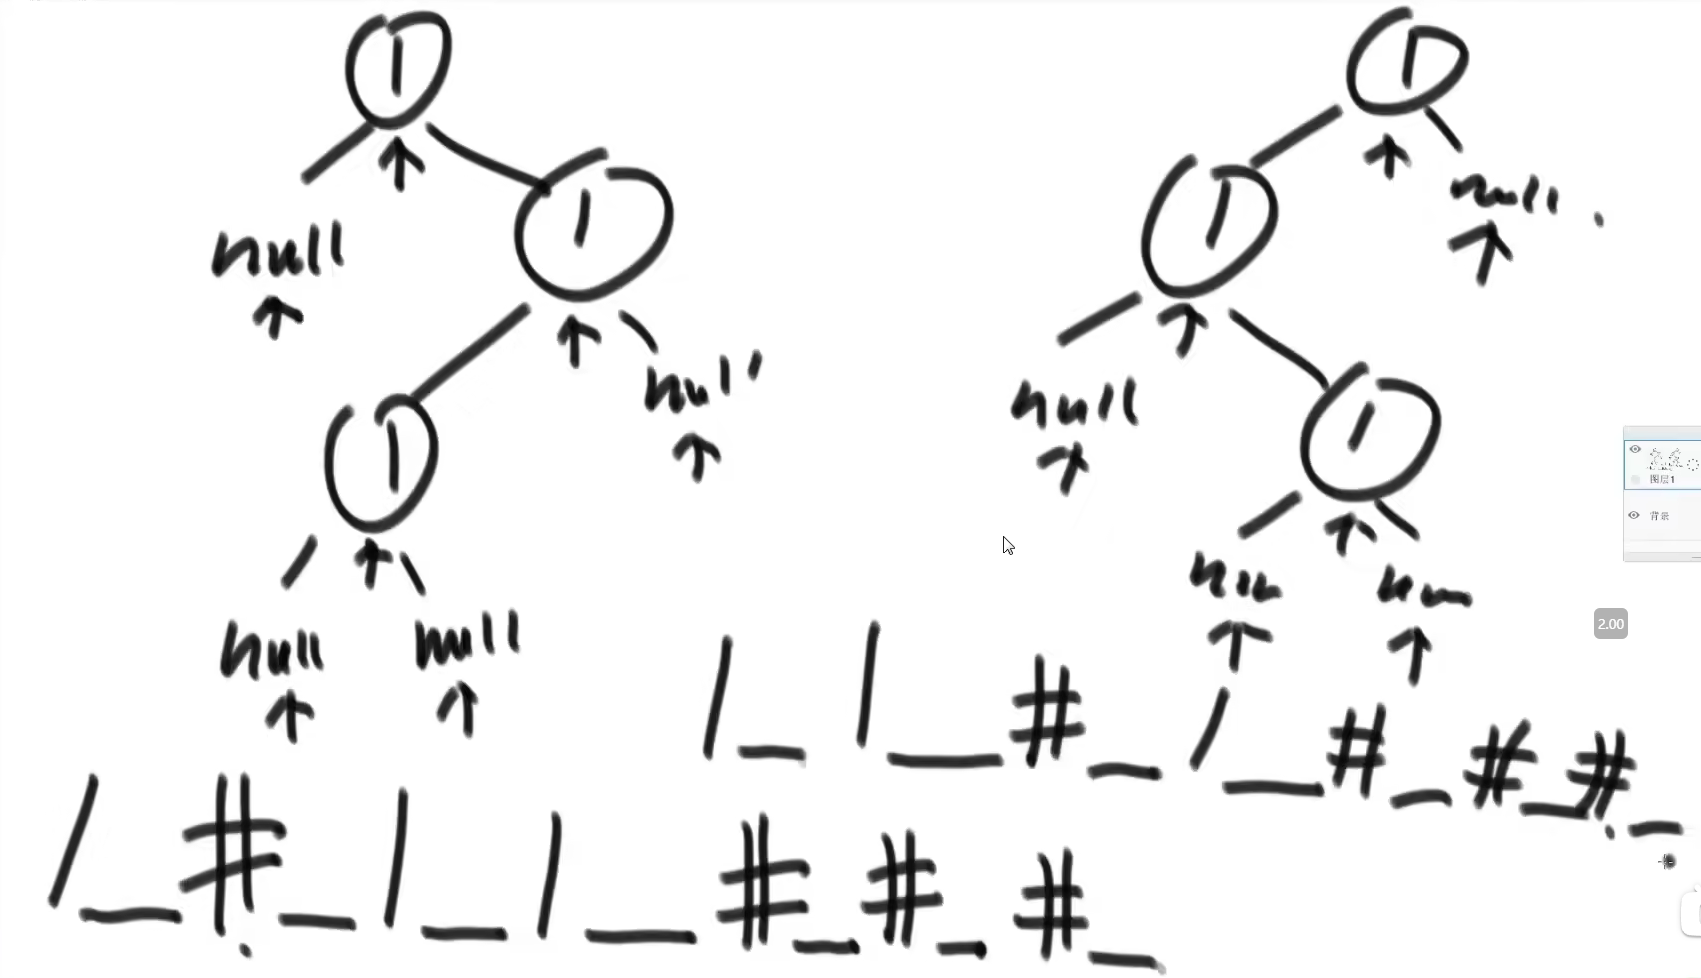 1
1
null
1
1
null
nul'
null
null
1
1
null
null
1_1_#_1_#_#_#_
1_#_1_1_#_#_#_
图层1
背景
2.00